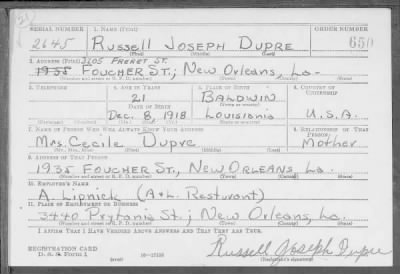 SERIAL NUMBER 1. NAME (Print) ORDER NUMBER
2645 RUSSELL JOSEPH DUPRE 650
(First) (Middle) (Last)
2. ADDRESS (Print) 3105 PRERET ST.
1935 FOUCHER ST.; NEW ORLEANS, LA.
(Number and street or R. F. D. number) (Town) (County) (State)
3. TELEPHONE 4. AGE IN YEARS 5. PLACE OF BIRTH 6. COUNTRY OF CITIZENSHIP
21 BALDWIN
DATE OF BIRTH (Town or county)
DEC. 8, 1918 LOUISIANA U.S.A.
(Exchange) (Number) (Mo.) (Day) (Yr.) (State or country)
7. NAME OF PERSON WHO WILL ALWAYS KNOW YOUR ADDRESS 8. RELATIONSHIP OF THAT PERSON
MRS. CECILE DUPRE MOTHER
(Mr., Mrs., Miss) (First) (Middle) (Last)
9. ADDRESS OF THAT PERSON
1935 FOUCHER ST., NEW ORLEANS LA.
(Number and street or R. F. D. number) (Town) (County) (State)
10. EMPLOYER'S NAME
A. LIPNICK (A+L. RESTURANT)
11. PLACE OF EMPLOYMENT OR BUSINESS
3440 PRYTANIA ST.; NEW ORLEANS, LA.
(Number and street or R. F. D. number) (Town) (County) (State)
I AFFIRM THAT I HAVE VERIFIED ABOVE ANSWERS AND THAT THEY ARE TRUE.
REGISTRATION CARD
D. S. S. Form 1 (over) Russell Joseph Dupre
(Registrant's signature)